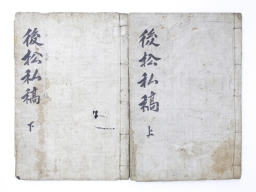 後松私稿
上
後松私稿
下